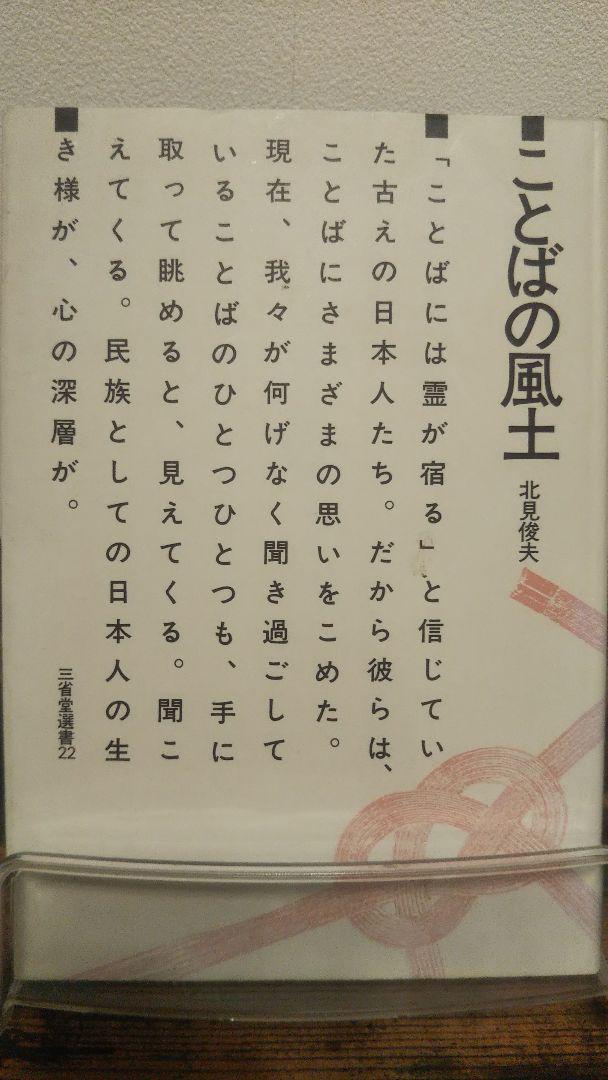 ことばの風土
北見俊夫
「ことばには霊が宿る」と信じてい
た古えの日本人たち。だから彼らは、
ことばにさまざまの思いをこめた。
現在、我々が何げなく聞き過ごして
いることばのひとつひとつも、手に
取って眺めると、見えてくる。聞こ
えてくる。民族としての日本人の生
き様が、心の深層が。
三省堂選書22